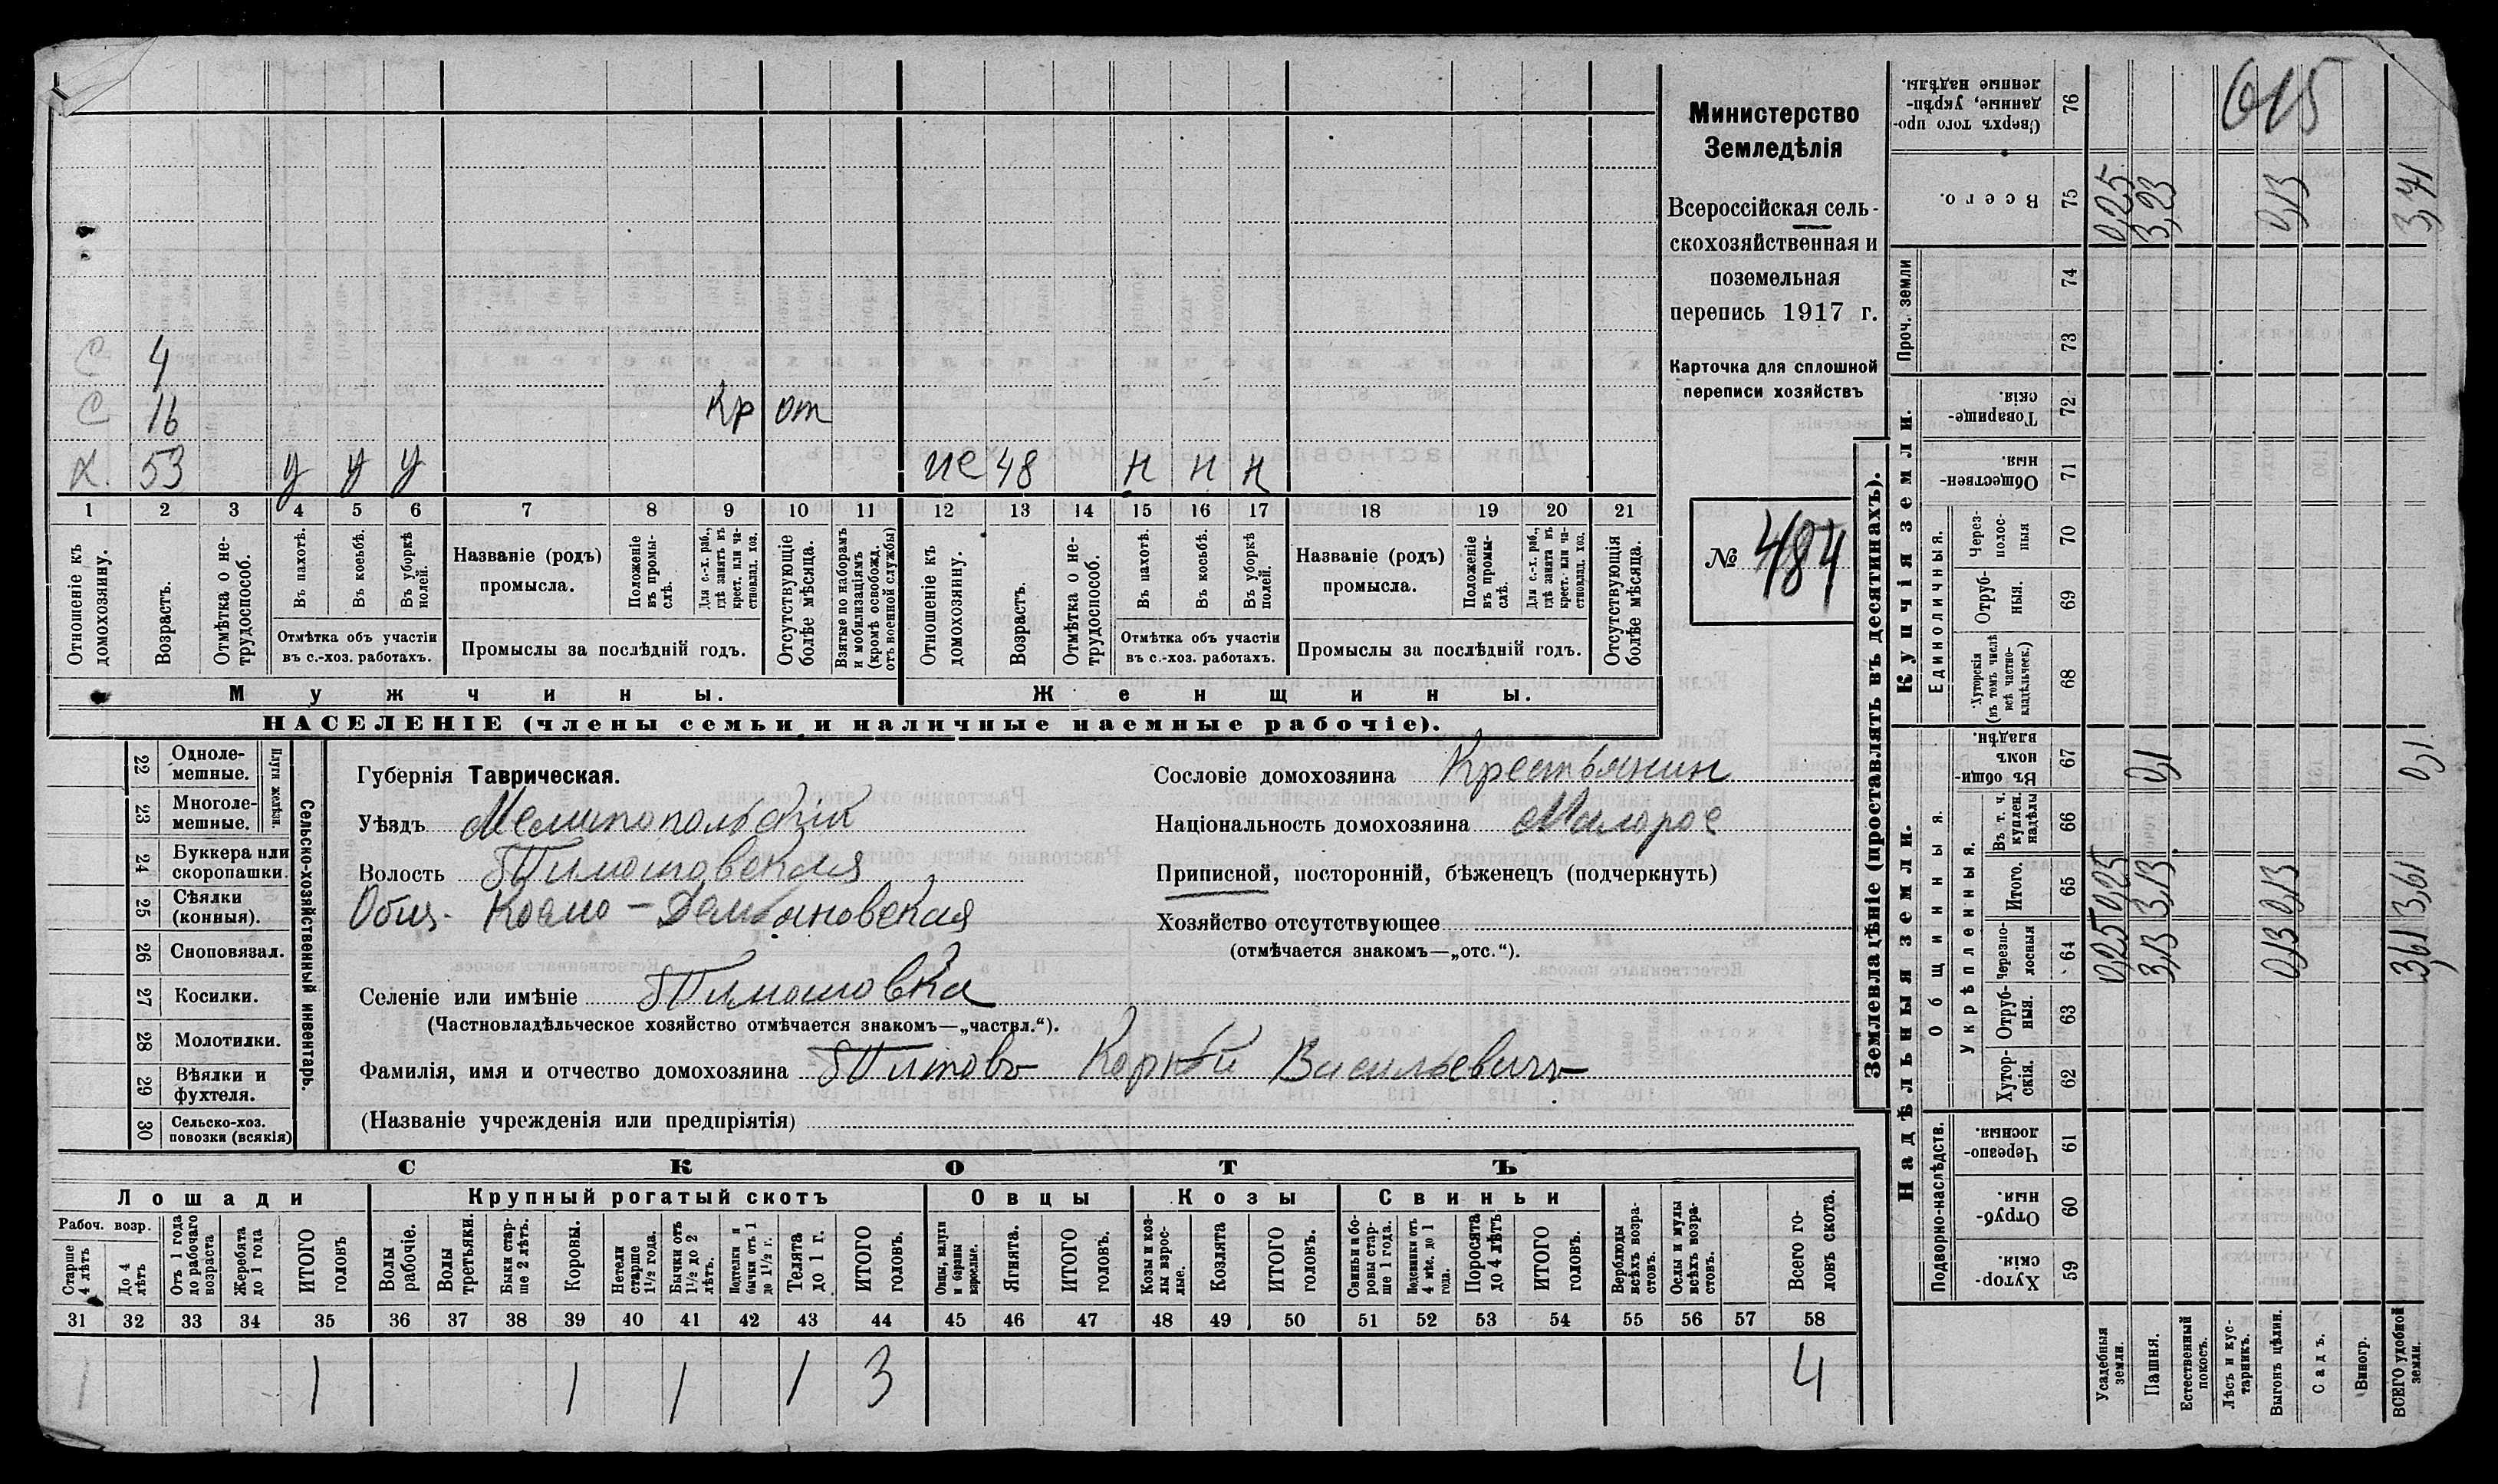 С 4
С 16 Кр от
Х. 53 у у у же 48 н н н
1 2 3 4 5 6 7 8 9 10 11 12 13 14 15 16 17 18 19 20 21
Отношеніе къ домохозяину.
Возрастъ.
Отмѣтка о не-трудоспособ.
Въ пахотѣ.
Въ косьбѣ.
Въ уборкѣ полей.
Отмѣтка объ участіи
въ с.-хоз. работахъ.
Названіе (родъ)
промысла.
Положеніе въ промы-слѣ.
Для с.-х. раб., гдѣ занятъ въ крест. или ча-стновлад. хоз.
Промыслы за послѣдній годъ.
Отсутствующіе болѣе мѣсяца.
Взятые по наборамъ и мобилизаціямъ (кромѣ освобожд. отъ военной службы)
Отношеніе къ домохозяину.
Возрастъ.
Отмѣтка о не-трудоспособ.
Въ пахотѣ.
Въ косьбѣ.
Въ уборкѣ полей.
Отмѣтка объ участіи
въ с.-хоз. работахъ.
Названіе (родъ)
промысла.
Положеніе въ промы-слѣ.
Для с.-х. раб., гдѣ занята въ крест. или ча-стновлад. хоз.
Промыслы за послѣдній годъ.
Отсутствующія болѣе мѣсяца.
Мужчины. Женщины.
НАСЕЛЕНІЕ (члены семьи и наличные наемные рабочіе).
Министерство
Земледѣлія
Всероссійская сель-
скохозяйственная и
поземельная
перепись 1917 г.
Карточка для сплошной
переписи хозяйствъ
№ 484
22 Одноле-мешные.
23 Многоле-мешные.
Плуги желѣзн.
24 Буккера или скоропашки.
25 Сѣялки (конныя).
26 Сноповязал.
27 Косилки.
28 Молотилки.
29 Вѣялки и фухтеля.
30 Сельско-хоз. повозки (всякія)
Сельско-хозяйственный инвентарь.
Губернія Таврическая.
Уѣздъ Мелитопольскій
Волость Тимошовская
Общ. Козмо-Демьяновская
Селеніе или имѣніе Тимошовка
(Частновладѣльческое хозяйство отмѣчается знакомъ—„частвл.“).
Фамилія, имя и отчество домохозяина Титовъ Корнѣй Васильевичъ
(Названіе учрежденія или предпріятія)
Сословіе домохозяина Крестьянин
Національность домохозяина Малорос
Приписной, посторонній, бѣженецъ (подчеркнуть)
Хозяйство отсутствующее
(отмѣчается знакомъ—„отс.“).
СКОТЪ
Лошади Крупный рогатый скотъ Овцы Козы Свиньи
Рабоч. возр.
Старше 4 лѣтъ
До 4 лѣтъ
Отъ 1 года до рабочаго возраста
Жеребята до 1 года
ИТОГО головъ
Волы рабочіе.
Волы третьяки.
Быки стар-ше 2 лѣтъ.
Коровы.
Нетели старше 1½ года.
Бычки отъ 1½ до 2 лѣтъ.
Подтелки и бычки отъ 1 до 1½ г.
Телята до 1 г.
ИТОГО головъ.
Овцы, валухи и бараны взрослые.
Ягнята.
ИТОГО головъ.
Козы и коз-лы взрос-лые.
Козлята
ИТОГО головъ.
Свиньи и бо-ровы стар-ше 1 года.
Подсвинки отъ 4 мѣс. до 1 года.
Поросята до 4 лѣтъ
ИТОГО головъ.
Верблюды всѣхъ возра-стовъ.
Ослы и мулы всѣхъ возра-стовъ.
Всего го-ловъ скота.
31 32 33 34 35 36 37 38 39 40 41 42 43 44 45 46 47 48 49 50 51 52 53 54 55 56 57 58
1 1 1 1 1 3 4
Землевладѣніе (проставлять въ десятинахъ).
Надѣльныя земли. Купчія земли.
Подворно-наслѣдств.
Общинныя.
Укрѣпленныя.
Единоличныя.
Проч. земли
59 Хутор-скія.
60 Отруб-ныя.
61 Черезпо-лосныя.
62 Хутор-скія.
63 Отруб-ныя.
64 Черезпо-лосныя 0,25 3,13 0,13 3,61
65 Итого. 0,25 3,13 0,13 3,61
66 Въ т. ч. куплен. надѣлы
67 Въ общи-номъ владѣн. 0,1 0,1
68 Хуторскія (въ томъ числѣ всѣ частно-владѣльческ.)
69 Отруб-ныя.
70 Через-полос-ныя
71 Обществен-ныя.
72 Товарище-скія.
73
74
75 Всего. 0,25 3,23 0,13 3,71
76 Сверхъ того про-данные, укрѣп-ленные надѣлы.
615
Усадебныя земли.
Пашня.
Естественный покосъ.
Лѣсъ и кус-тарникъ.
Выгонъ цѣлин.
Садъ.
Виногр.
ВСЕГО удобной земли.